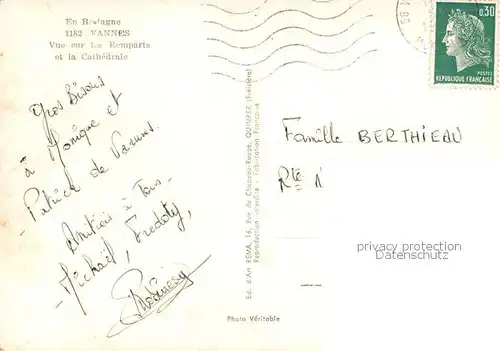 En Bretagne
1182 VANNES
Vue sur les Remparts
et la Cathédrale
0,30
POSTES
REPUBLIQUE FRANÇAISE
Gros Bisous
à Monique et
Patrick de Vannes.
Amitiés à Tous
Michaël, Freddy,
Famille BERTHIEAU
Rte
privacy protection
Datenschutz
Ed. d'Art REMA, 16, Rue du Chapeau-Rouge, QUIMPER (Finistère)
Reproduction interdite - Fabrication Française
Photo Véritable